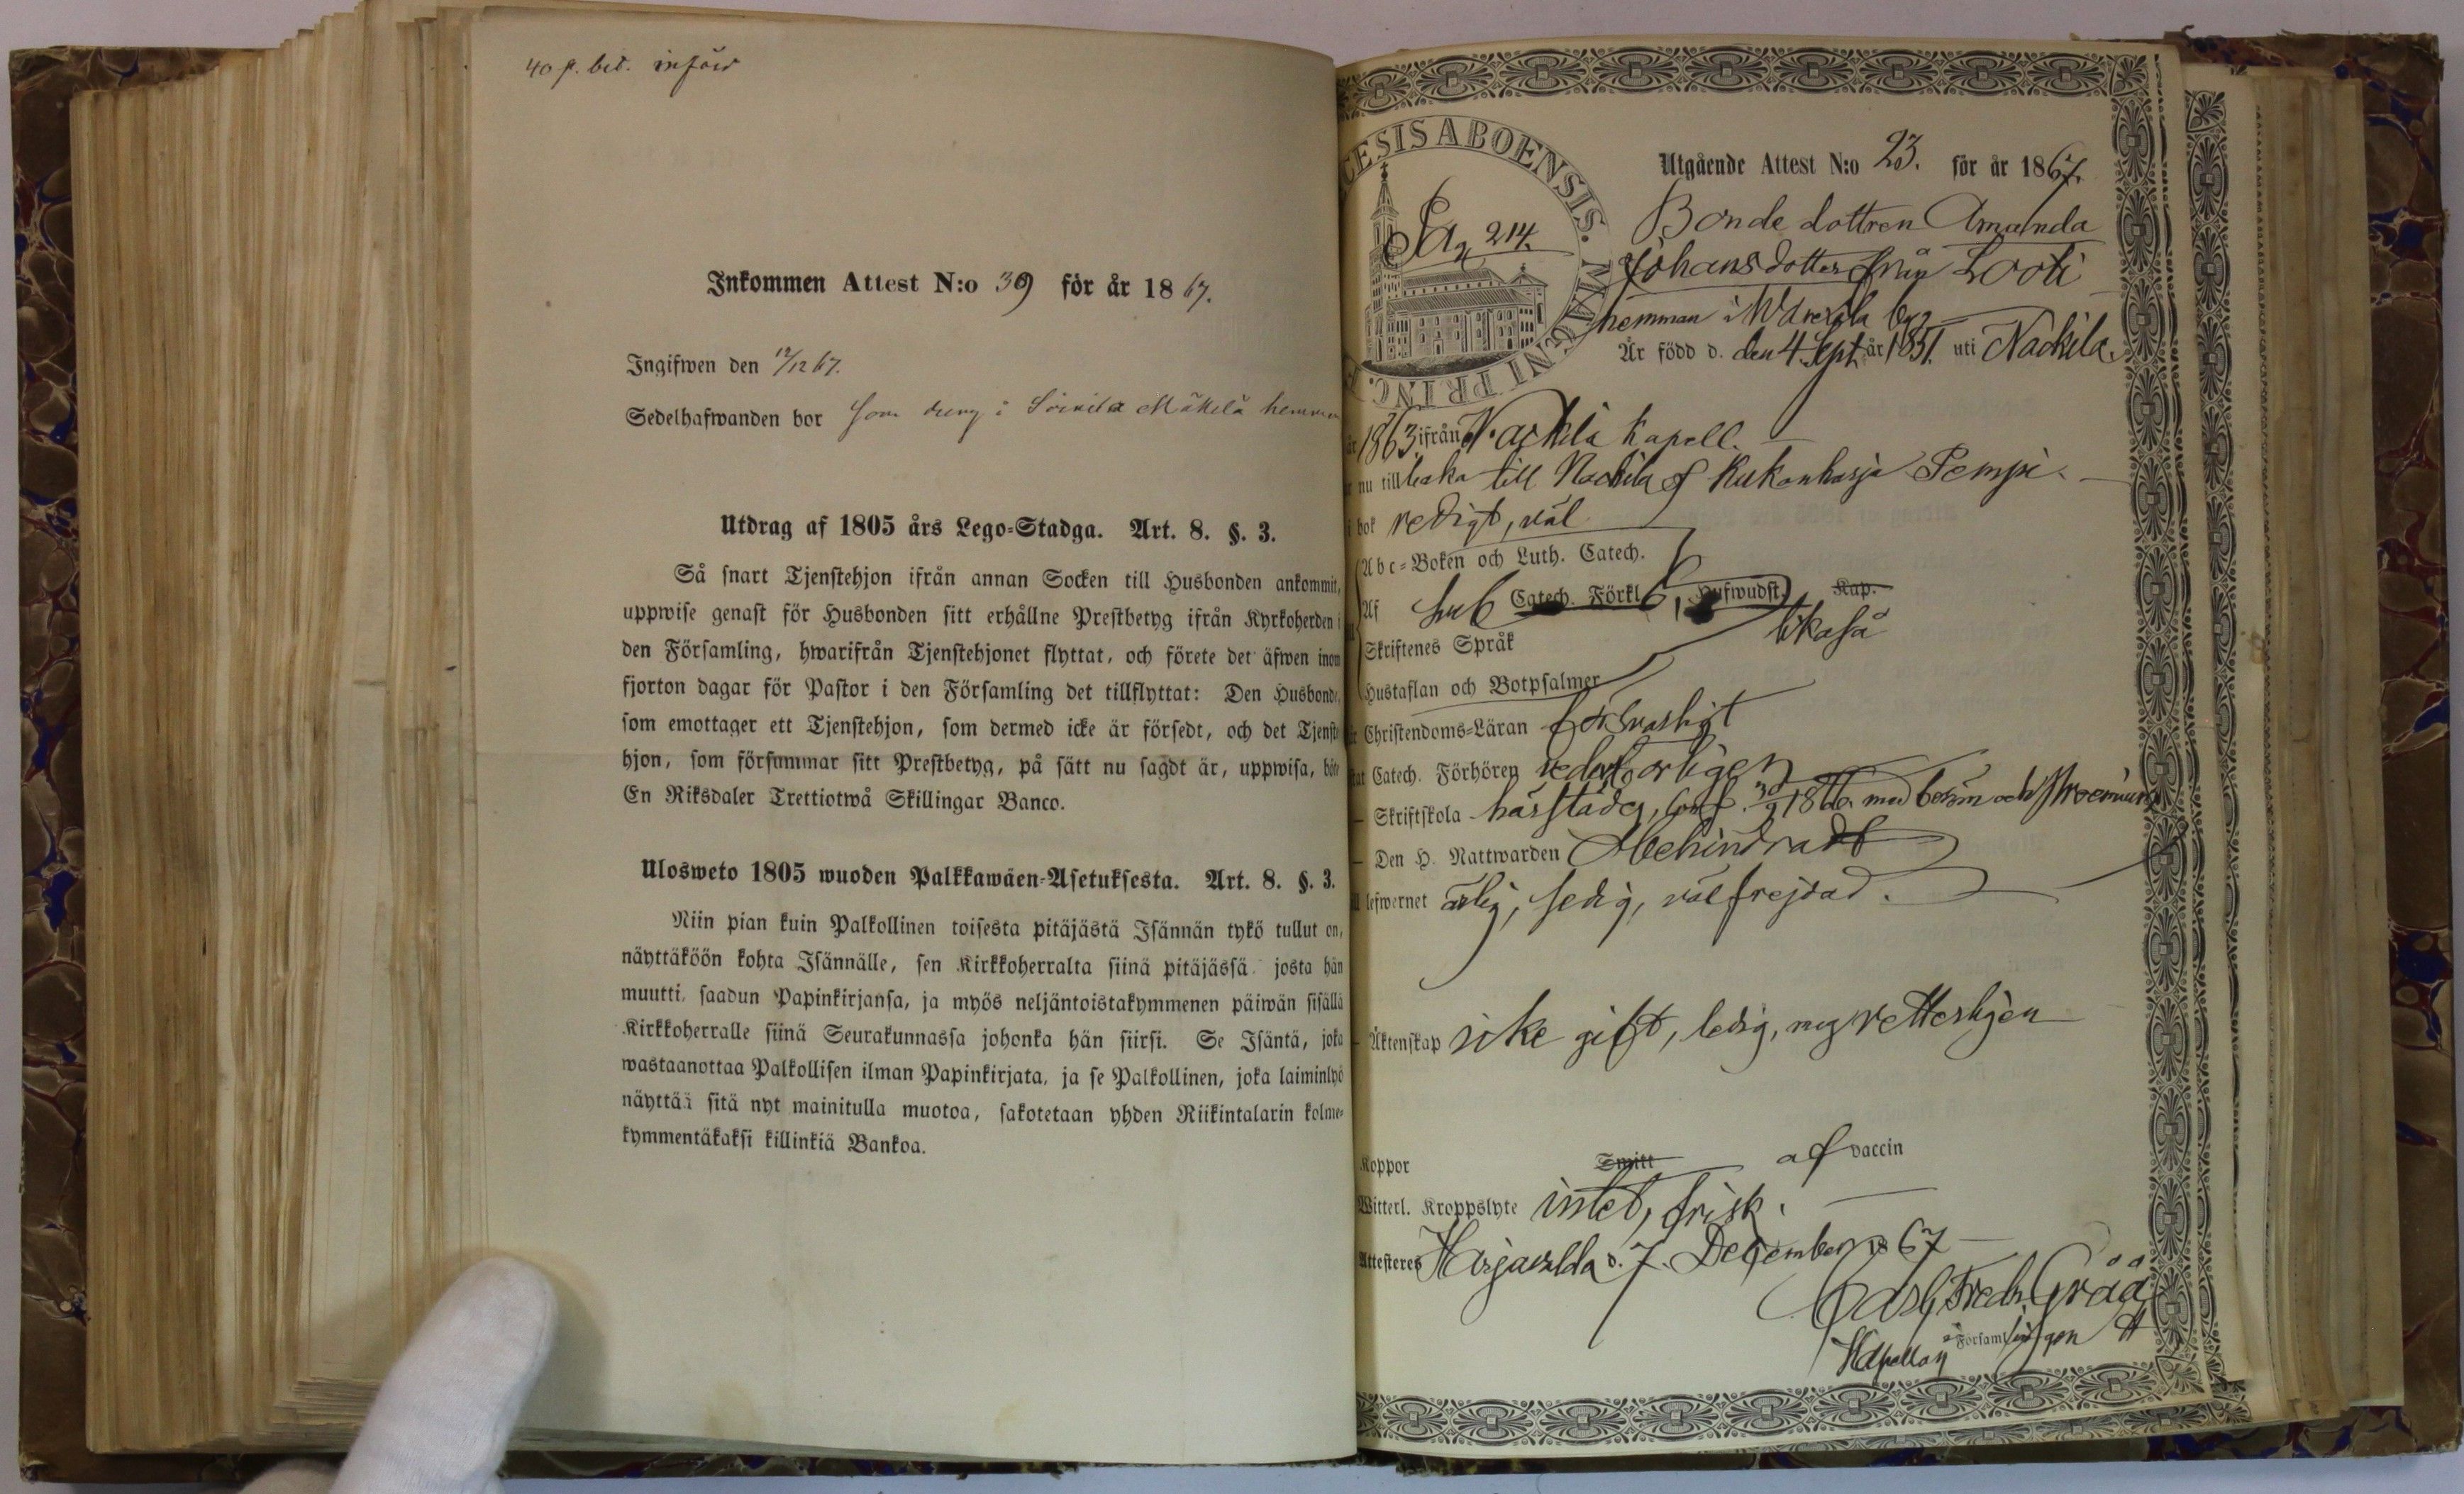 40 p. bet. införd
Inkommen Attest N:o 39 för år 1867.
Ingifwen den 12/12 67.
Sedelhafwanden bor som dreng i Mäkelä hemman
Utdrag af 1805 års Lego-Stadga. Art. 8. §. 3.
Så snart Tjenstehjon ifrån annan Socken till Husbonden ankommit,
uppwise genast för Husbonden sitt erhållne Prestbetyg ifrån Kyrkoherden i
den Församling, hwarifrån Tjenstehjonet flyttat, och förete det äfwen inom
fjorton dagar för Pastor i den Församling det tillflyttat: Den Husbonde,
som emottager ett Tjenstehjon, som dermed icke är försedt, och det Tjenste-
hjon, som försummar sitt Prestbetyg, på sätt nu sagdt är, uppwisa, böte
En Riksdaler Trettiotwå Skillingar Banco.
Ulosweto 1805 wuoden Palkkawäen-Asetuksesta. Art. 8. §. 3.
Niin pian kuin Palkollinen toisesta pitäjästä Isännän tykö tullut on,
näyttäköön kohta Isännälle, sen Kirkkoherralta siinä pitäjässä josta hän
muutti, saadun Papinkirjansa, ja myös neljäntoistakymmenen päiwän sisällä
Kirkkoherralle siinä Seurakunnassa johonka hän siirsi. Se Isäntä, joka
wastaanottaa Palkollisen ilman Papinkirjata, ja se Palkollinen, joka laiminlyö
näyttää sitä nyt mainitulla muotoa, sakotetaan yhden Riikintalarin kolme-
kymmentäkaksi killinkiä Bankoa.
CESIS ABOENSIS. MAGNI PRINC.
Pag 214.
Utgående Attest N:o 23. för år 1867.
Bonde dottren Amanda
Johansdotter från Looti
hemman i by
Är född d. den 4 Sept. år 1851. uti Nackila.
år 1863 ifrån Nackila Kapell.
nu tillbaka till Nackila Kukonharja Tempi.
i bok redigt, väl
Abc-Boken och Luth. Catech.
Af Catech. Förkl. 6, Hufwudst. Kap.
likaså
Skriftenes Språk
Hustaflan och Botpsalmer
Christendoms-Läran försvarligt
Catech. Förhören vederbörligen
Skriftskola härstädes, conf. 30/9 1866. med beröm och
Den H. Nattwarden Obehindradt
lefwernet ärlig, sedig, välfrejdad.
Äktenskap icke gift, ledig, veterligen
Koppor Smitt af vaccin
Witterl. Kroppslyte intet, frisk.
Attesteres Harjavalda d. 7. December 1867
Carl Fredr. Gråå
Kapellan i Församlingen